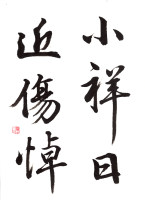 小祥日
近傷悼